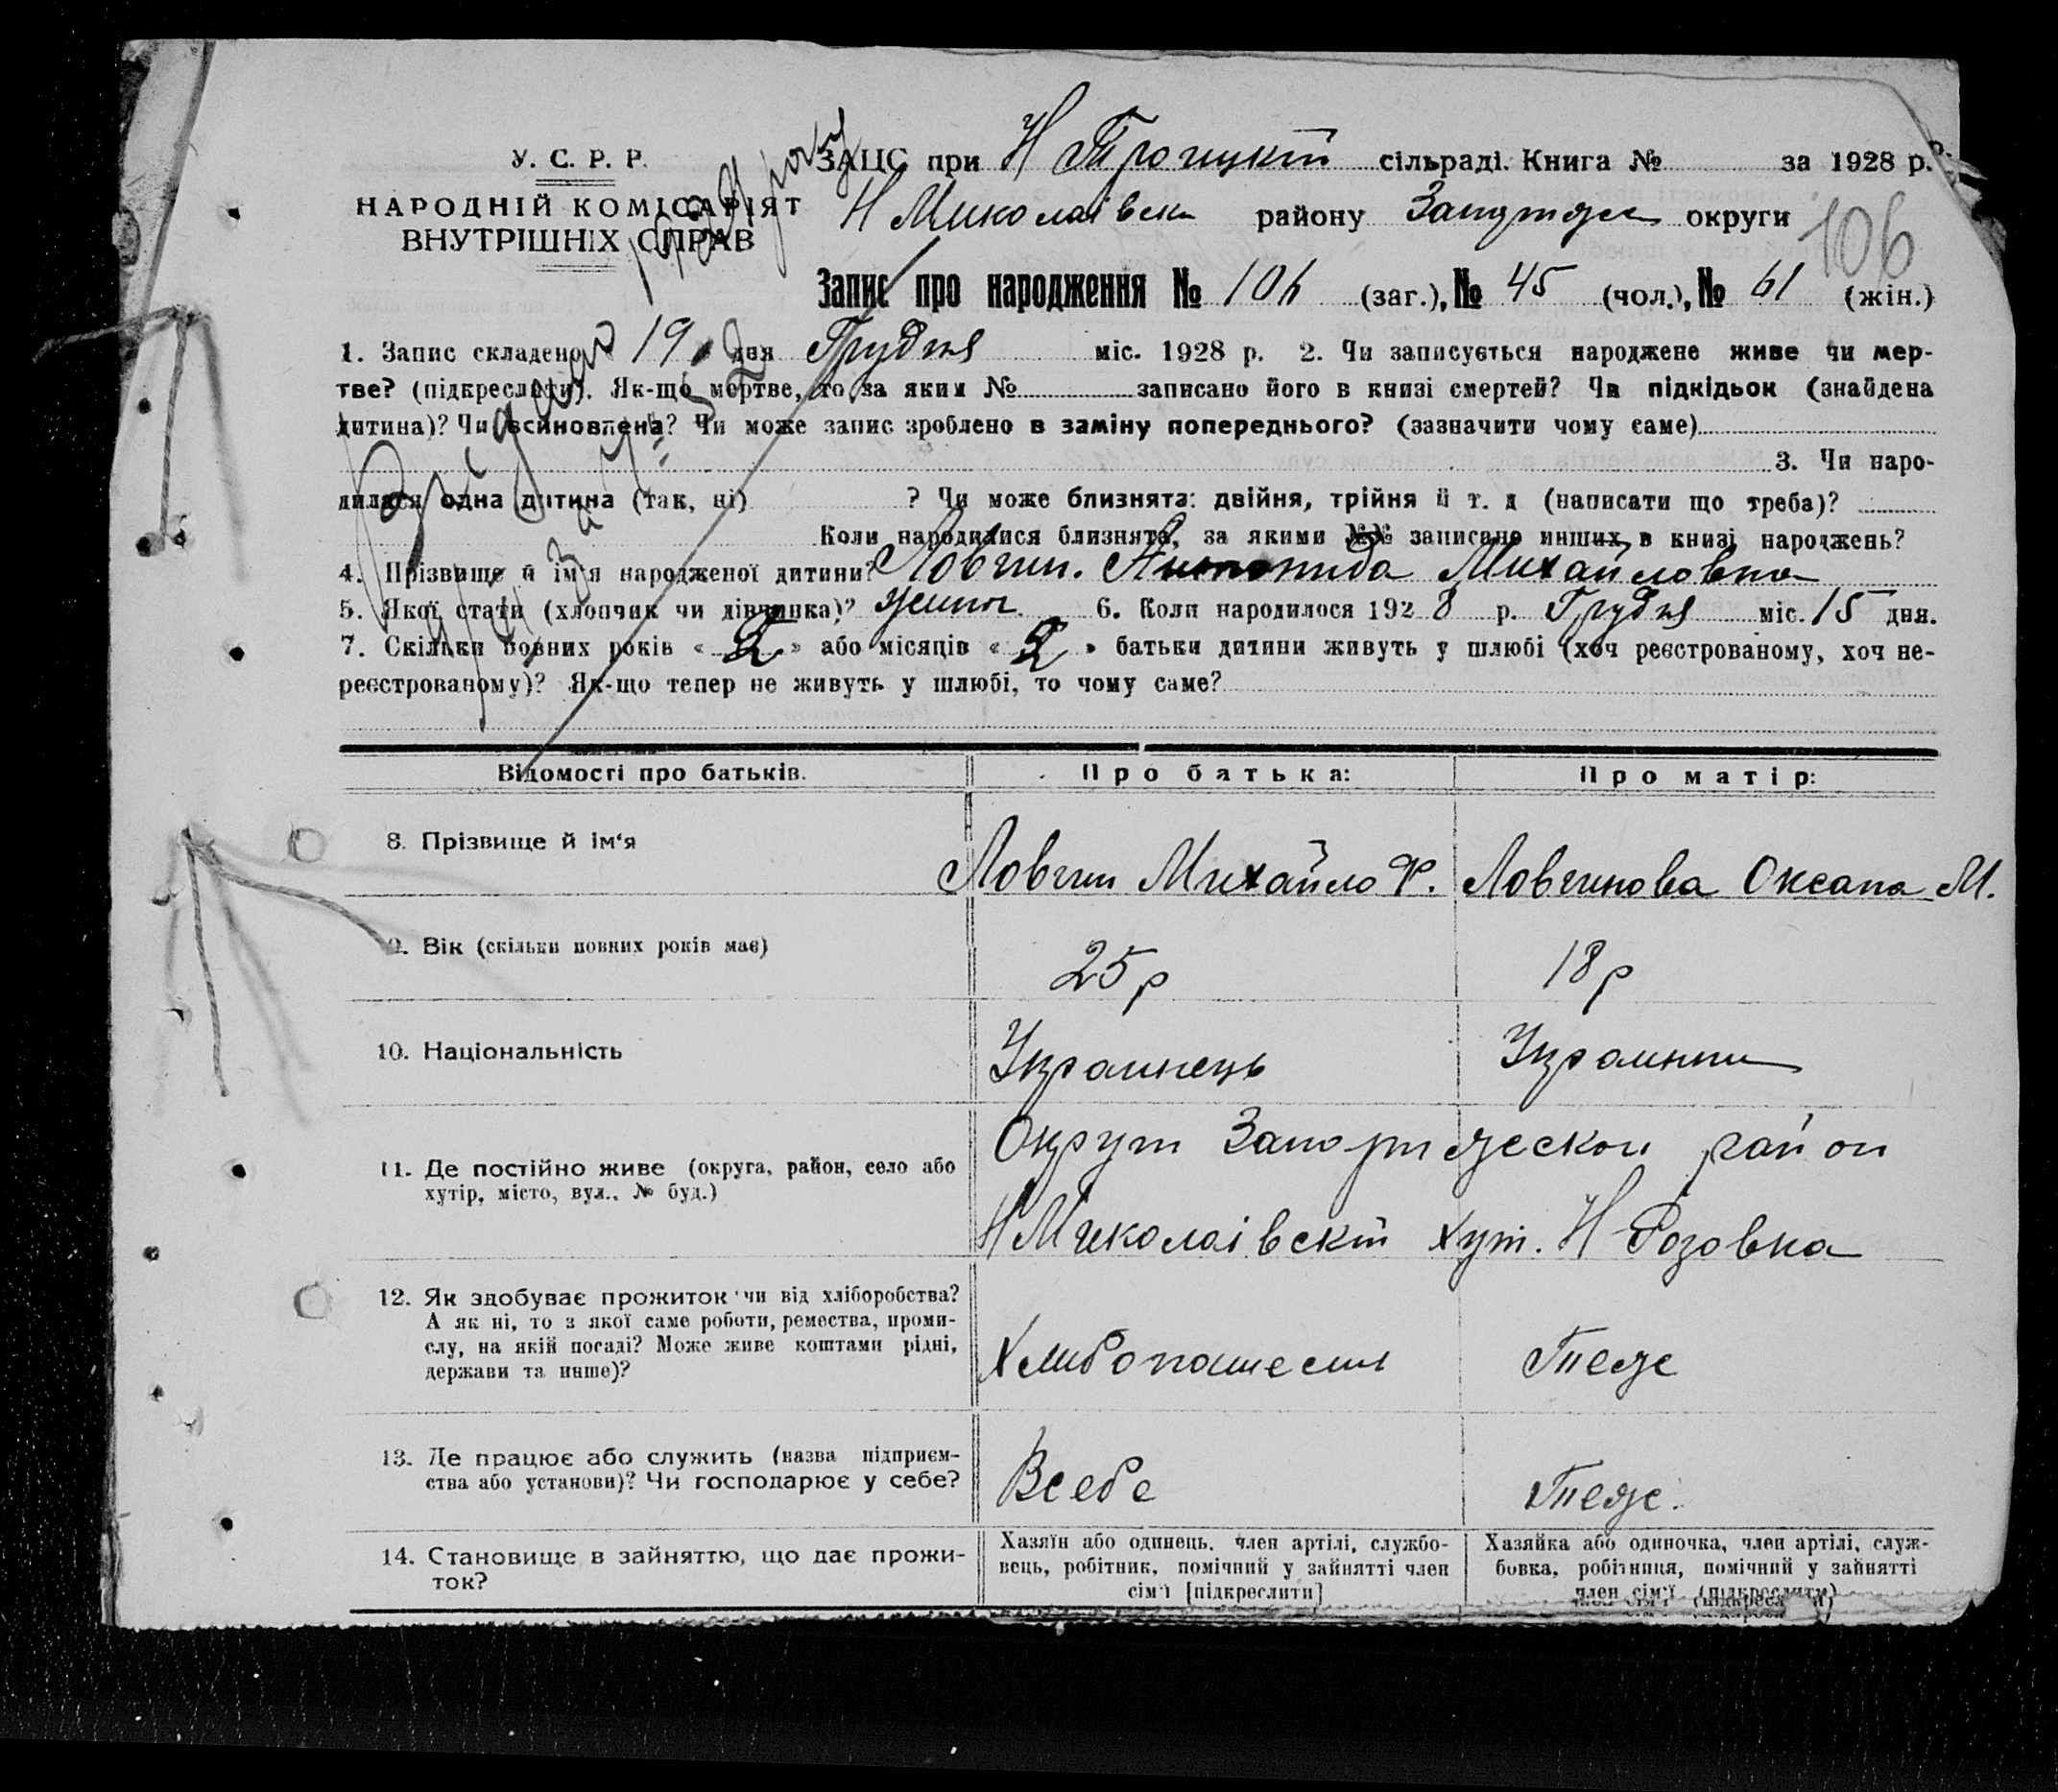 У. С. Р. Р.
НАРОДНІЙ КОМІСАРІЯТ
ВНУТРІШНІХ СПРАВ
ЗАЦС при Н Троицкій сільраді. Книга № за 1928 р.
Н Миколаівськ району округи
106
Запис про народження № 106 (заг.), № 45 (чол.), № 61 (жін.)
1. Запис складено 19 дня Грудня міс. 1928 р. 2. Чи записується народжене живе чи мер-
тве? (підкреслити). Як-що мертве, то за яким № записано його в книзі смертей? Чи підкідьок (знайдена
дитина)? Чи всиновлена? Чи може запис зроблено в заміну попереднього? (зазначити чому саме)
3. Чи наро-
дилася одна дитина (так, ні) ? Чи може близнята: двійня, трійня й т. д (написати що треба)?
Коли народилися близнята, за якими №№ записано инших в книзі народжень?
4. Прізвище й ім'я народженої дитини? Ловгин. Михайловна
5. Якої стати (хлопчик чи дівчинка)? 6. Коли народилося 1928 р. Грудня міс. 15 дня.
7. Скільки повних років « 2 » або місяців « 2 » батьки дитини живуть у шлюбі (хоч реєстрованому, хоч не-
реєстрованому)? Як-що тепер не живуть у шлюбі, то чому саме?
Відомості про батьків. Про батька: Про матір:
8. Прізвище й ім'я Ловгин Михайло Ф. Ловгинова Оксана М.
9. Вік (скільки повних років має) 25 р 18 р
10. Національність Украинець Украинка
11. Де постійно живе (округа, район, село або
хутір, місто, вул., № буд.)
Округ район
Н Миколаівскій хут. Н Розовка
12. Як здобуває прожиток чи від хліборобства?
А як ні, то з якої саме роботи, ремества, проми-
слу, на якій посаді? Може живе коштами рідні,
держави та инше)?
Теже
13. Де працює або служить (назва підприєм-
ства або установи)? Чи господарює у себе?
Всебе Теже.
14. Становище в зайняттю, що дає прожи-
ток?
Хазяїн або одинець, член артілі, службо-
вець, робітник, помічний у зайнятті член
сім'ї [підкреслити]
Хазяйка або одиночка, член артілі, служ-
бовка, робітниця, помічний у зайнятті
член сім'ї (підкреслити)